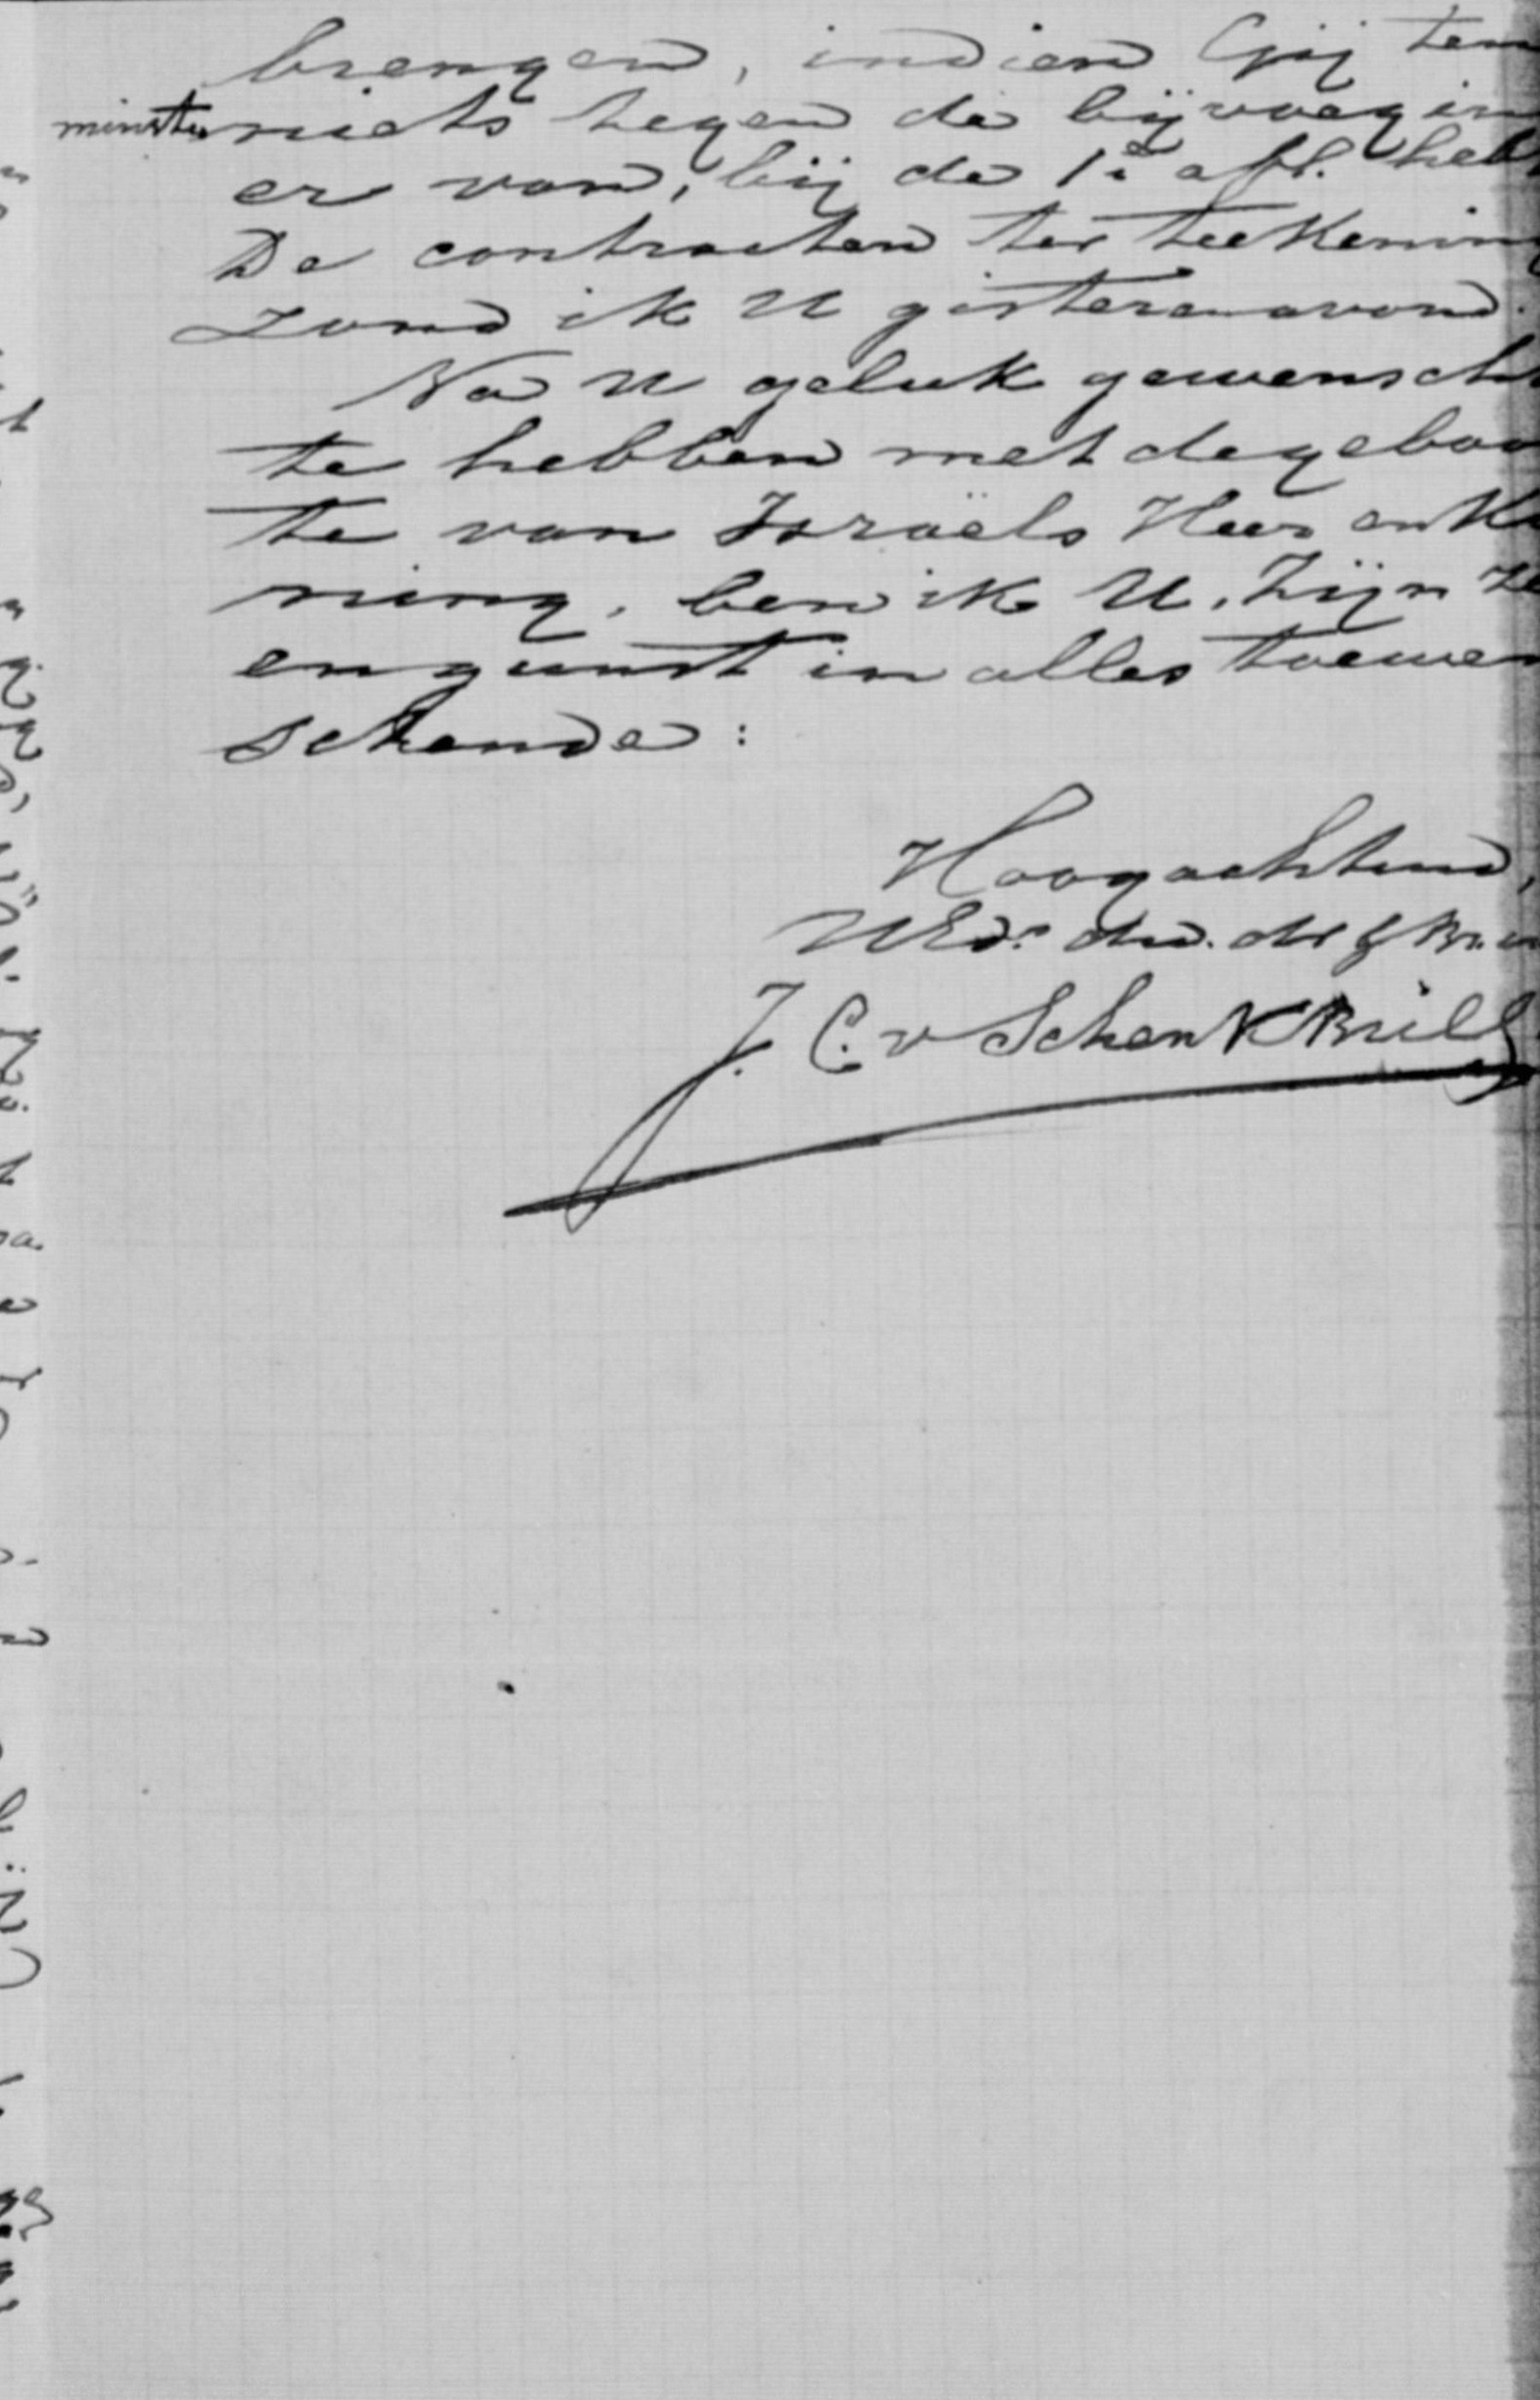 brengen, indien Gij ten
minste niets tegen de bijvoegin
er van, bij de 1e afl. heb
De contracten ter teekening
zond ik U gisterenavond.
Na U geluk gewenscht
te hebben met de geboo
te van Israëls Heer en Ko
ning, ben ik U, Zijn
en gunst in alles toewen
schende:
Hoogachtend,
UEd. dw. dr &
J. C. v Schenk Brill